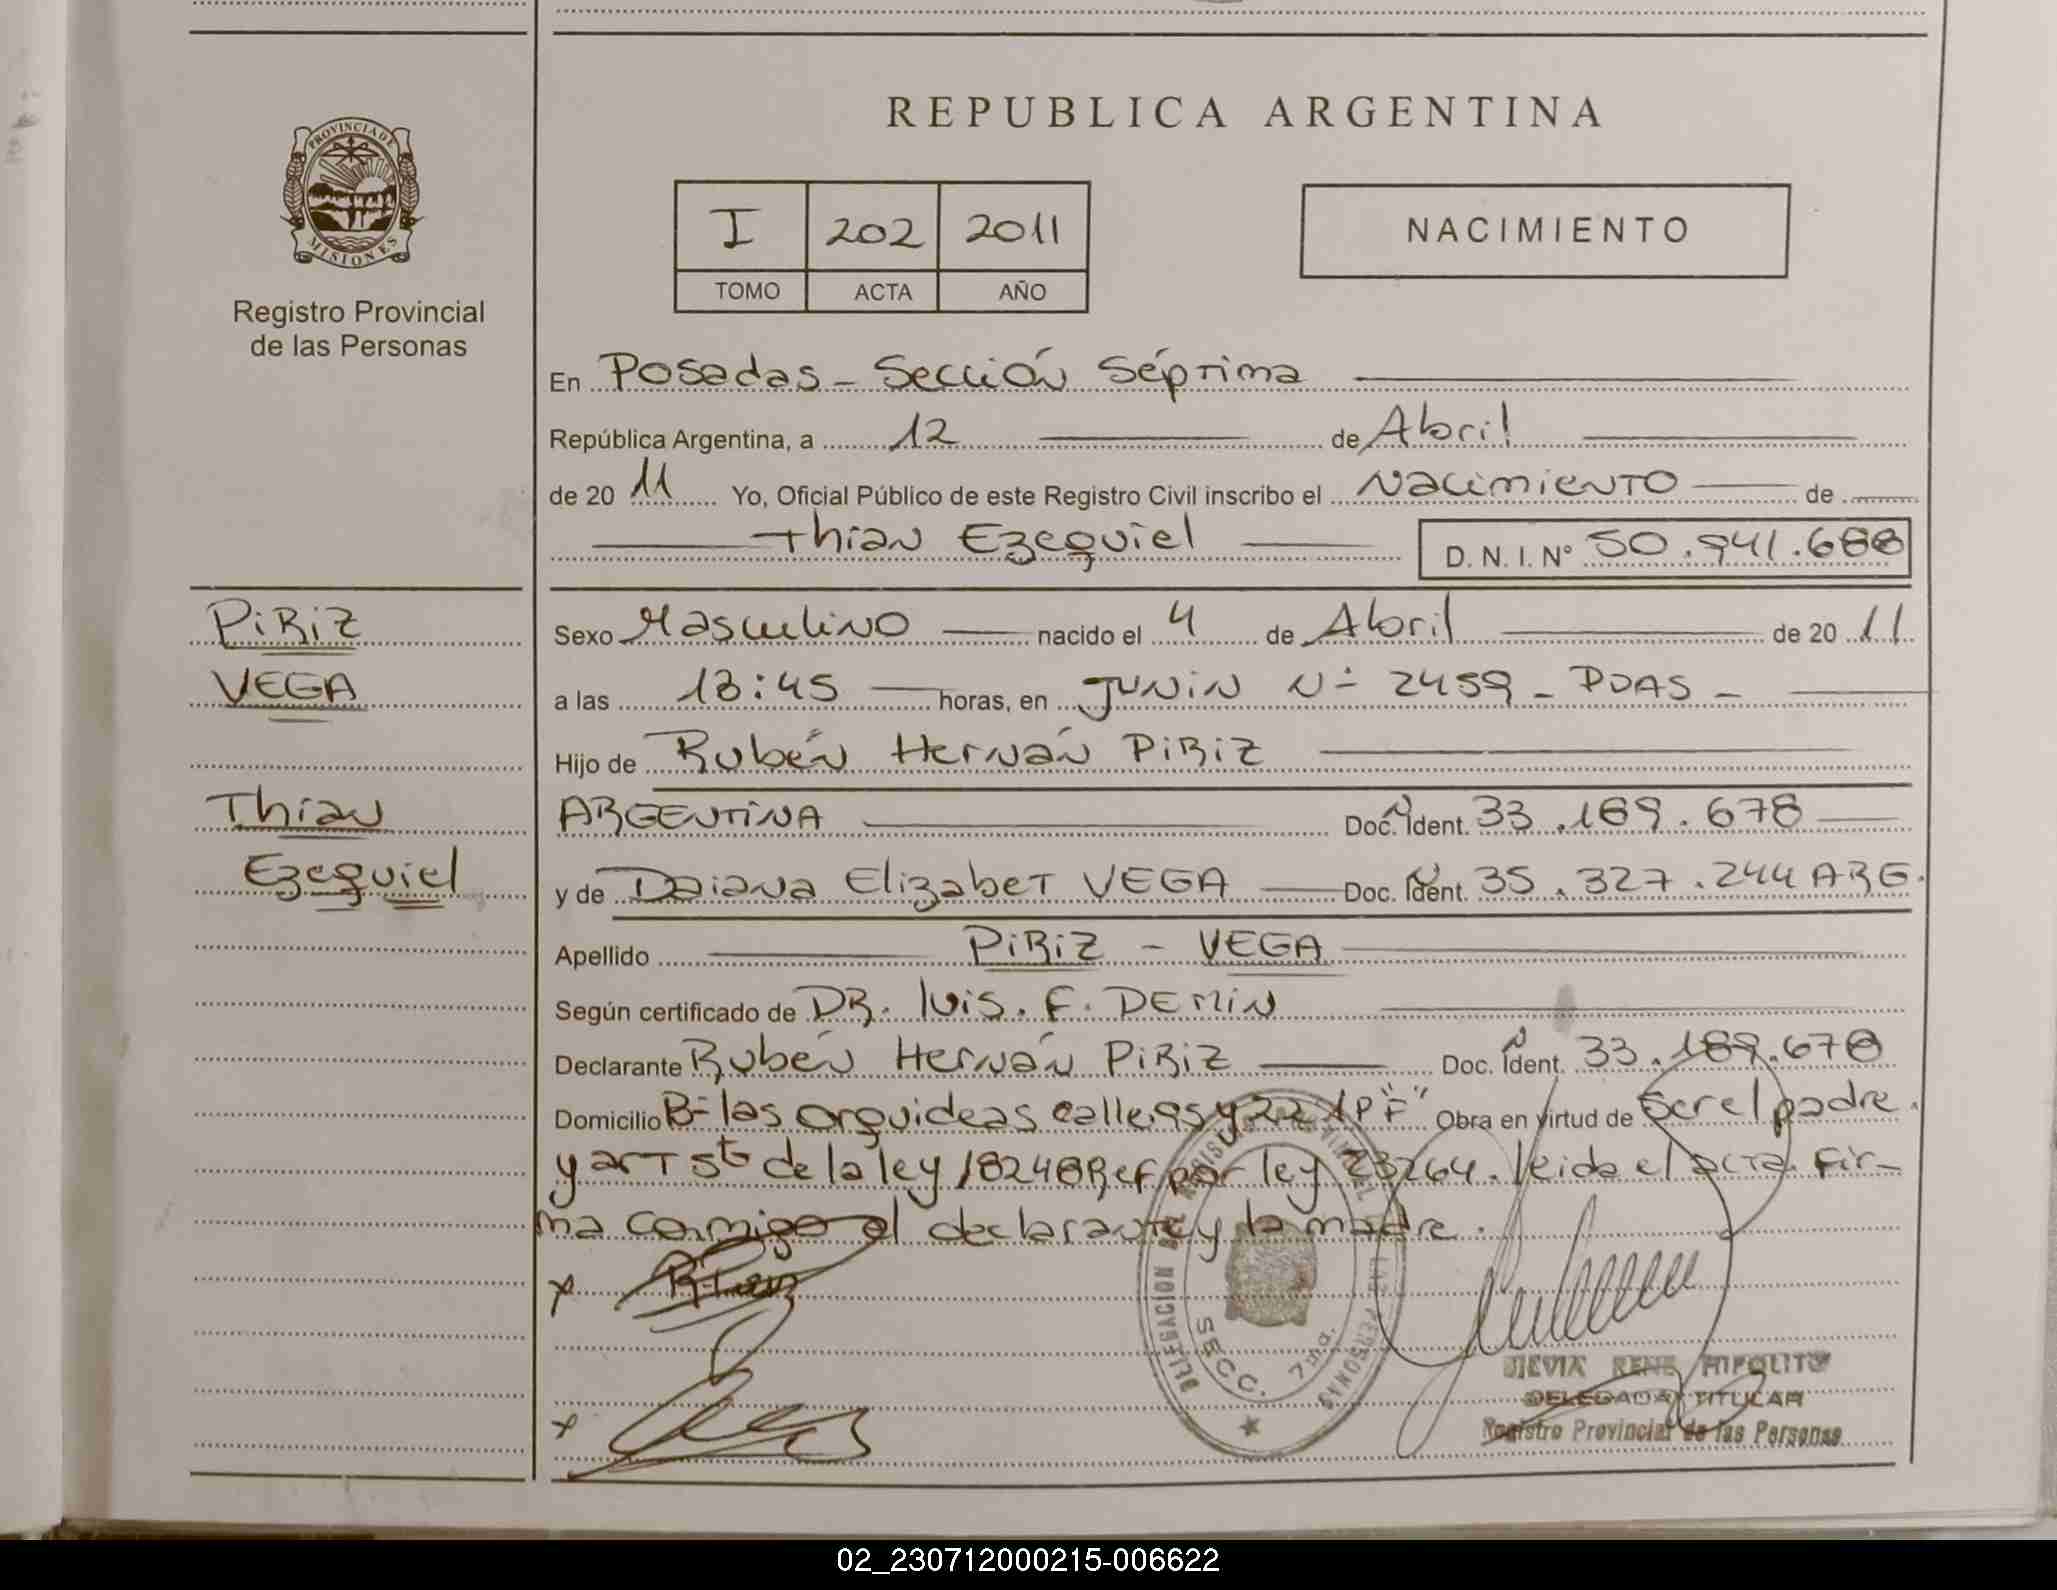 PROVINCIA DE
MISIONES
Registro Provincial
de las Personas
REPUBLICA ARGENTINA
I 202 2011
TOMO ACTA AÑO
NACIMIENTO
En Posadas - Sección Séptima
República Argentina, a 12 de Abril
de 20 11 Yo, Oficial Público de este Registro Civil inscribo el Nacimiento de
Thian Ezequiel D. N. I. Nº 50.941.688
PiRiZ
VEGA
Thian
Ezequiel
Sexo Masculino nacido el 4 de Abril de 20 11
a las 13:45 horas, en JUNiN Nº 2459 - PDAS -
Hijo de Rubén Hernán PiRiZ
ARGENTiNA Doc. Ident. 33.189.678
y de Daiana Elizabet VEGA Doc. Ident. 35.327.244 ARG.
Apellido PiRiZ - VEGA
Según certificado de DR. luis. F. DEMiN
Declarante Rubén Hernán PiRiZ Doc. Ident. 33.189.678
Domicilio Bº las orquideas calle 195 y 22 1P "F" Obra en virtud de ser el padre.
y art 5to de la ley 18248 Ref por ley 23264. leida el acta. Fir-
ma conmigo el declarante y la madre.
x
x
DELEGACION DEL REGISTRO PROVINCIAL DE LAS PERSONAS
SECC. 7ma.
SILVIA RENE HIPOLITO
DELEGADA TITULAR
Registro Provincial de las Personas
02_230712000215-006622